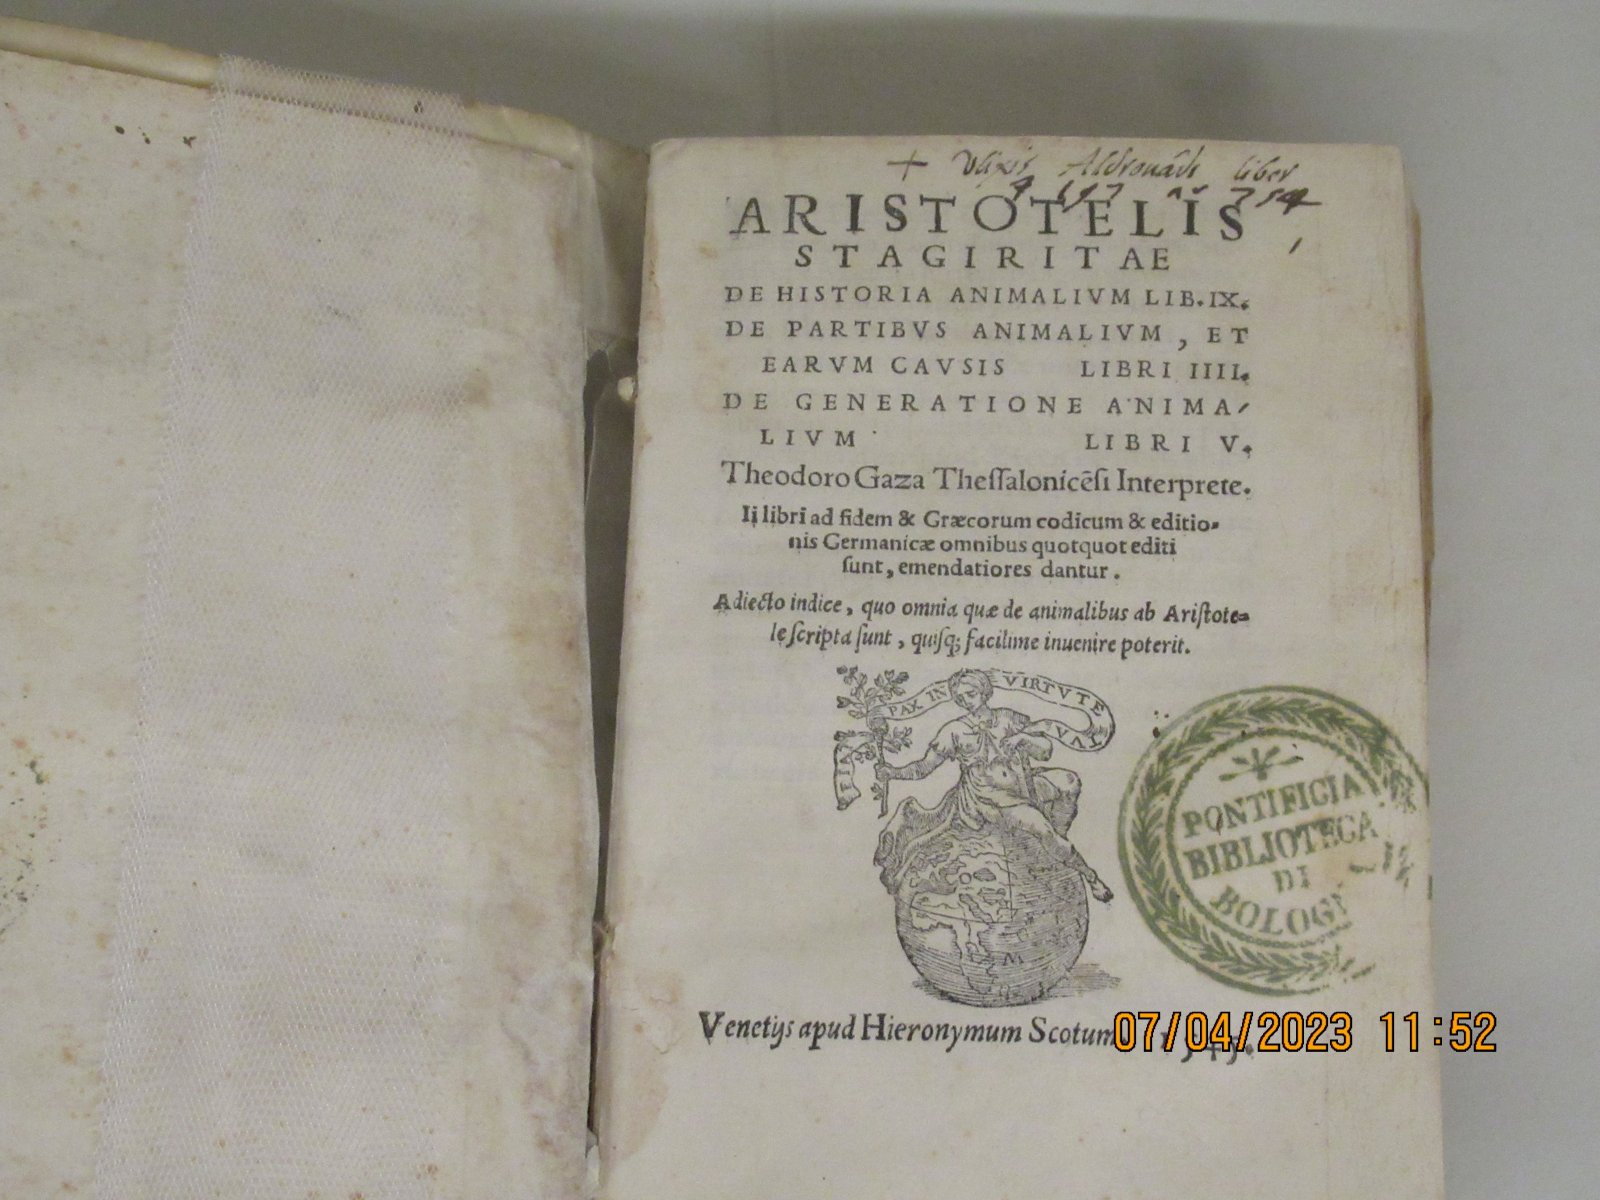 + Ulyxis Aldrovādi liber
ARISTOTELIS
STAGIRITAE
DE HISTORIA ANIMALIVM LIB. IX.
DE PARTIBVS ANIMALIVM, ET
EARVM CAVSIS LIBRI IIII.
DE GENERATIONE ANIMA/
LIVM LIBRI V.
Theodoro Gaza Theſſalonicēſi Interprete.
Ii libri ad fidem & Græcorum codicum & editio-
nis Germanicæ omnibus quotquot editi
ſunt, emendatiores dantur.
Adiecto indice, quo omnia quæ de animalibus ab Ariſtote-
le ſcripta ſunt, quiſq; facilime inuenire poterit.
FIAT PAX IN VIRTVTE TVA
PONTIFICIA
BIBLIOTECA
DI
BOLOG
Venetijs apud Hieronymum Scotum
07/04/2023 11:52